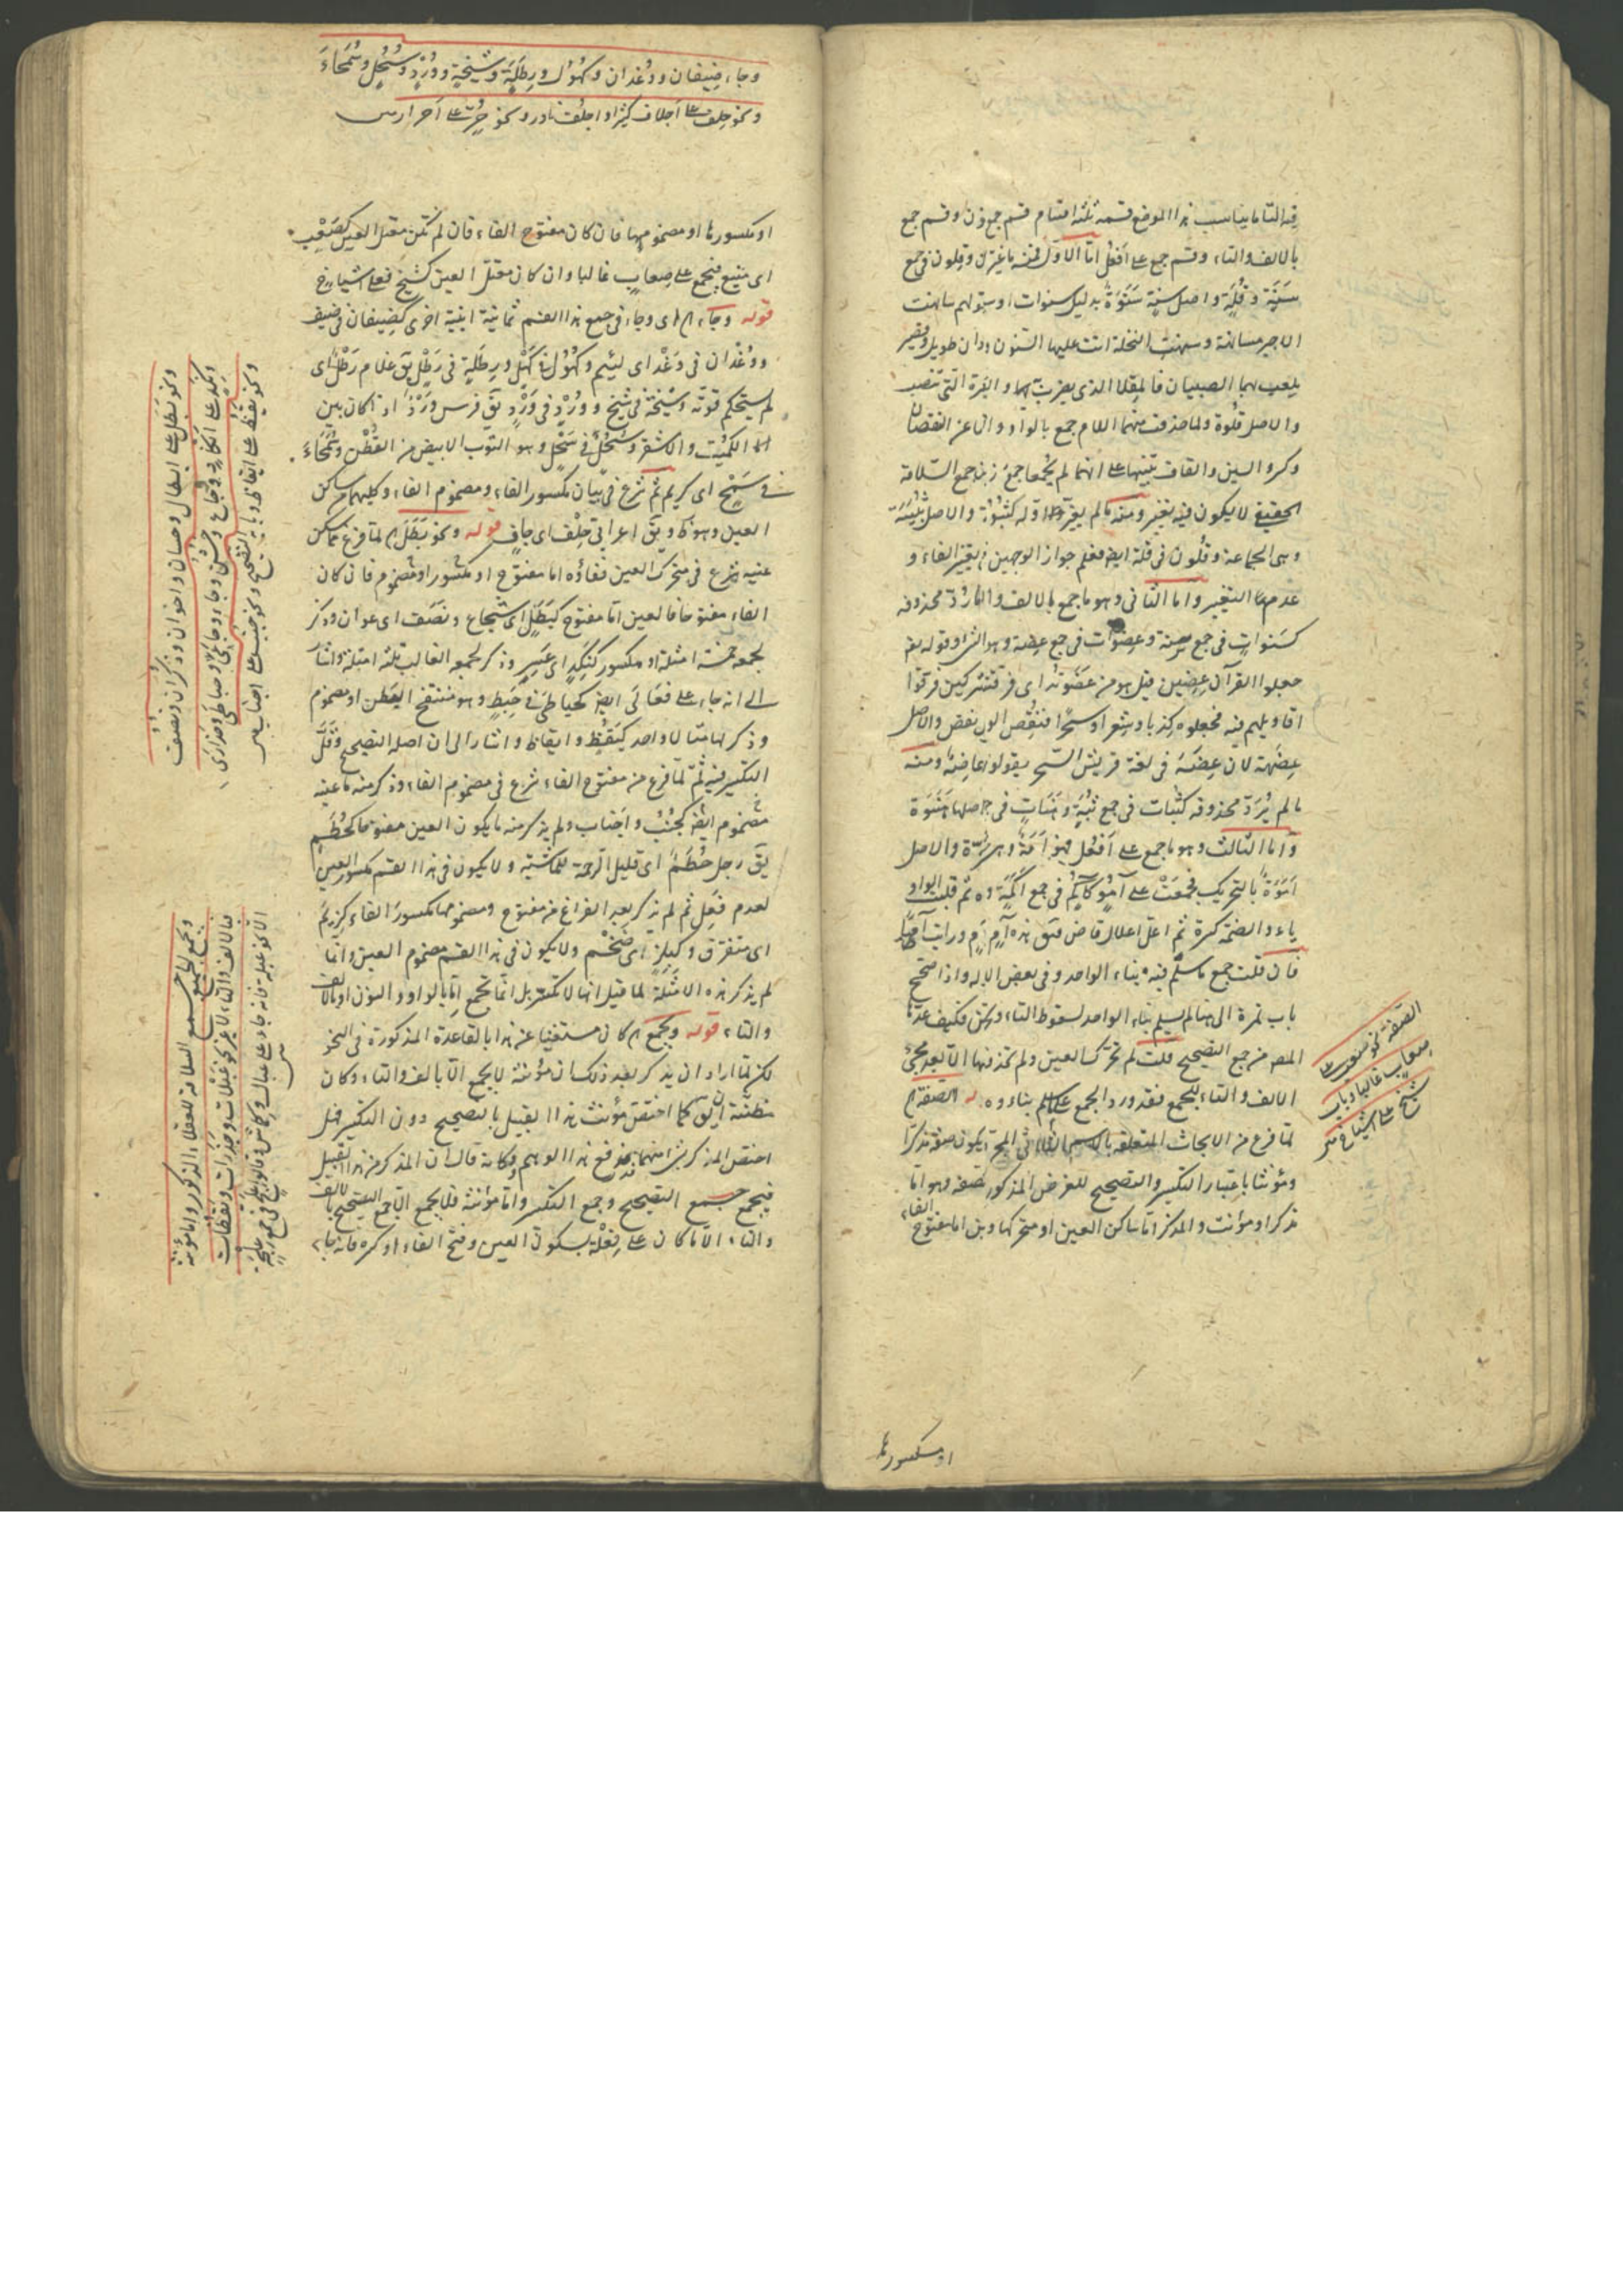 فيه التا ما يناسب هذا الموضع قسمه ثلثة اقسام قسم جمع ون وقسم جمع
بالالف والتاء وقسم جمع على افعل اما الاول فمنه ما غير ال وقلون في جمع
سنة وقلة واصل سنة سنوة بدليل سنوات او بقولهم سانهت
الاجير مسانهة وسنهت النخلة اتت عليها السنون ودان طويل وقصير
يلعب بهما الصبيان فالمقلا الذي يضرب بها و القرة التي تنصب
والاصل قلوة ولما حذفت منهما اللام جمع بالواو والن عن النقصان
وكسر السين والقاف تنبيها على انهما لم يجمعا جمع ن جمع السلامة
الحقيقي لا يكون فيه تغير ومنه ما لم يغير اوله كثبون والاصل ثبية
وهي الجماعة وقلون في قلة ايض فعلم جواز الوجهين تغير الفاء و
عدم التغيير واما الثاني وهو ما جمع بالالف والتا رد محذوفه
كسنوات في جمع سنة وعضوات في جمع عضة وقوله تع
جعلوا القرآن عضين قيل هو من عضوته اى فرقته كين فرقوا
اقاويلهم فيه فجعلوه كذبا وشعرا وسحرا فنقص الواو والاصل
عضهة لان عضة في لغة قريش السحر يقولون عاضه ومنه
ما لم يرد محذوفه كثبات في جمع ثبة وهنات في اصلها هنوة
واما الثالث وهو ما جمع على افعل فهو امة والاصل
اموة بالتحريك فجمعت على آمو كآكم في جمع اكمة ثم قلبت الواو
ياء والضمة كسرة ثم اعل اعلال قاض فيق هذه آم ورايت آميا
فان قلت جمع ما سلم فيه بناء الواحد وفي بعض واذا صح
باب تمرة الى لم يسلم بناء الواحد لسقوط التاء فكيف عد
المص من جمع التصحيح قلت لم تحرك العين ولم تحذفها الا بعد مجئ
الالف والتاء للجمع فقد ورد الجمع على بناؤه الصفة
لما فرغ من الابحاث المتعلقة الثلاثى يكون صفة مذكرا
ومؤنثا باعتبار التكسير والتصحيح للغرض المذكور صفه وهو اما
مذكرا او مؤنث والمذكر اما ساكن العين او متحركها وبن اما مفتوح الفاء
الصفة نحو صعب على
صعاب غالبا وباب
شيخ على اشياخ
او مكسورها
وجاء ضيفان ووغدان وكهول ورطلة وشيخة وورد وسحل وسمحاء
ونحو جلف على اجلاف كثيرا واجلف نادر ونحو حر على احرار
او مكسورها او مضمومها فان كان مفتوح الفاء فان لم يكن معتل العين كصعب
اى منيع فيجمع على صعاب غالبا وان كان معتل العين كشيخ فعلى اشياخ
قوله وجاء اى وجاء في جمع هذا القسم ثمانية ابنية اخرى كضيفان في ضيف
ووغدان في وغد اى لئيم وكهول في كهل ورطلة في رطل يق غلام رطل اى
لم يستحكم قوته وشيخة في شيخ وورد في ورد يق فرس ورد اذا كان بين
الكميت والاشقر وسحل في سحل وهو الثوب الابيض من القطن وسمحاء
في سمح اى كريم ثم شرع في بيان مكسور الفاء ومضموم الفاء وكليهما ساكن
العين وهو ظ ويق اعرابى جلف اى جاف قوله ونحو بطل لما فرغ عن ساكن
عنيه شرع في متحرك العين ففاؤه اما مفتوح او مكسور او مضموم فان كان
الفاء مفتوحا فالعين اما مفتوح كبطل اى شجاع ونصف اى عوان وذكر
لجمعه خمسة امثلة او مكسور كنكد اى عسير وذكر لجمعه الغالب ثلثة امثلة واشار
الى انه جاء على فعالى ايض كحباطى في حبط وهو منتفخ البطن او مضموم
وذكر لها مثالا واحدا كيقظ وايقاظ واشار الى ان اصله التصحيح وقل
التكسير فيه ثم لما فرغ من مفتوح الفاء شرع في مضموم الفاء وذكر منه ما عينه
مضموم ايض كجنب واجناب ولم يذكر منه ما يكون العين مفتوحا كحطم
يق رجل حطم اى قليل الرحمة للماشية ولا يكون في هذا القسم مكسور العين
لعدم فعل ثم لم يذكر بعد الفراغ من مفتوح ومضمومها مكسور الفاء كزيم
اى متفرق وكبلز اى ضخم ولا يكون في هذا القسم مضموم العين وانما
لم يذكر هذه الامثلة لما قيل انها لا تكسر بل انما تجمع اما بالواو والنون او بالالف
والتاء قوله ويجمع كان مستغنيا عن هذا بالقاعدة المذكورة في النحو
لكن لما اراد ان يذكر بعد ذلك ان مؤنثه لا يجمع الا بالالف والتاء وكان
مظنة ان يق كما اختص مؤنث هذا القبيل بالتصحيح دون التكسير فهل
اختص المذكر بشئ منهما فدفع هذا الوهم وكانه قال ان المذكر من هذا القبيل
فيجمع جمع التصحيح وجمع التكسير واما مؤنثه فلا يجمع الا جمع التصحيح بالالف
والتاء الا ما كان على فعلة بسكون العين وفتح الفاء او كسره فانه جاء
ونحو بطل على ابطال وحسان واخوان وذكران ونصف
ونكد على انكاد ووجاع وخشن وجاء وجاعى وحباطى وحذارى
ونحو يقظ على ايقاظ وبابه التصحيح ونحو جنب على اجناب
ويجمع الجميع جمع السلامة للعقلاء الذكور واما مؤنثه
فبالالف والتاء لا غير نحو عبلات وحذرات ويقظات
الا نحو عبلة فانه جاء على عبال وكماش وقالوا علج في جمع علجة